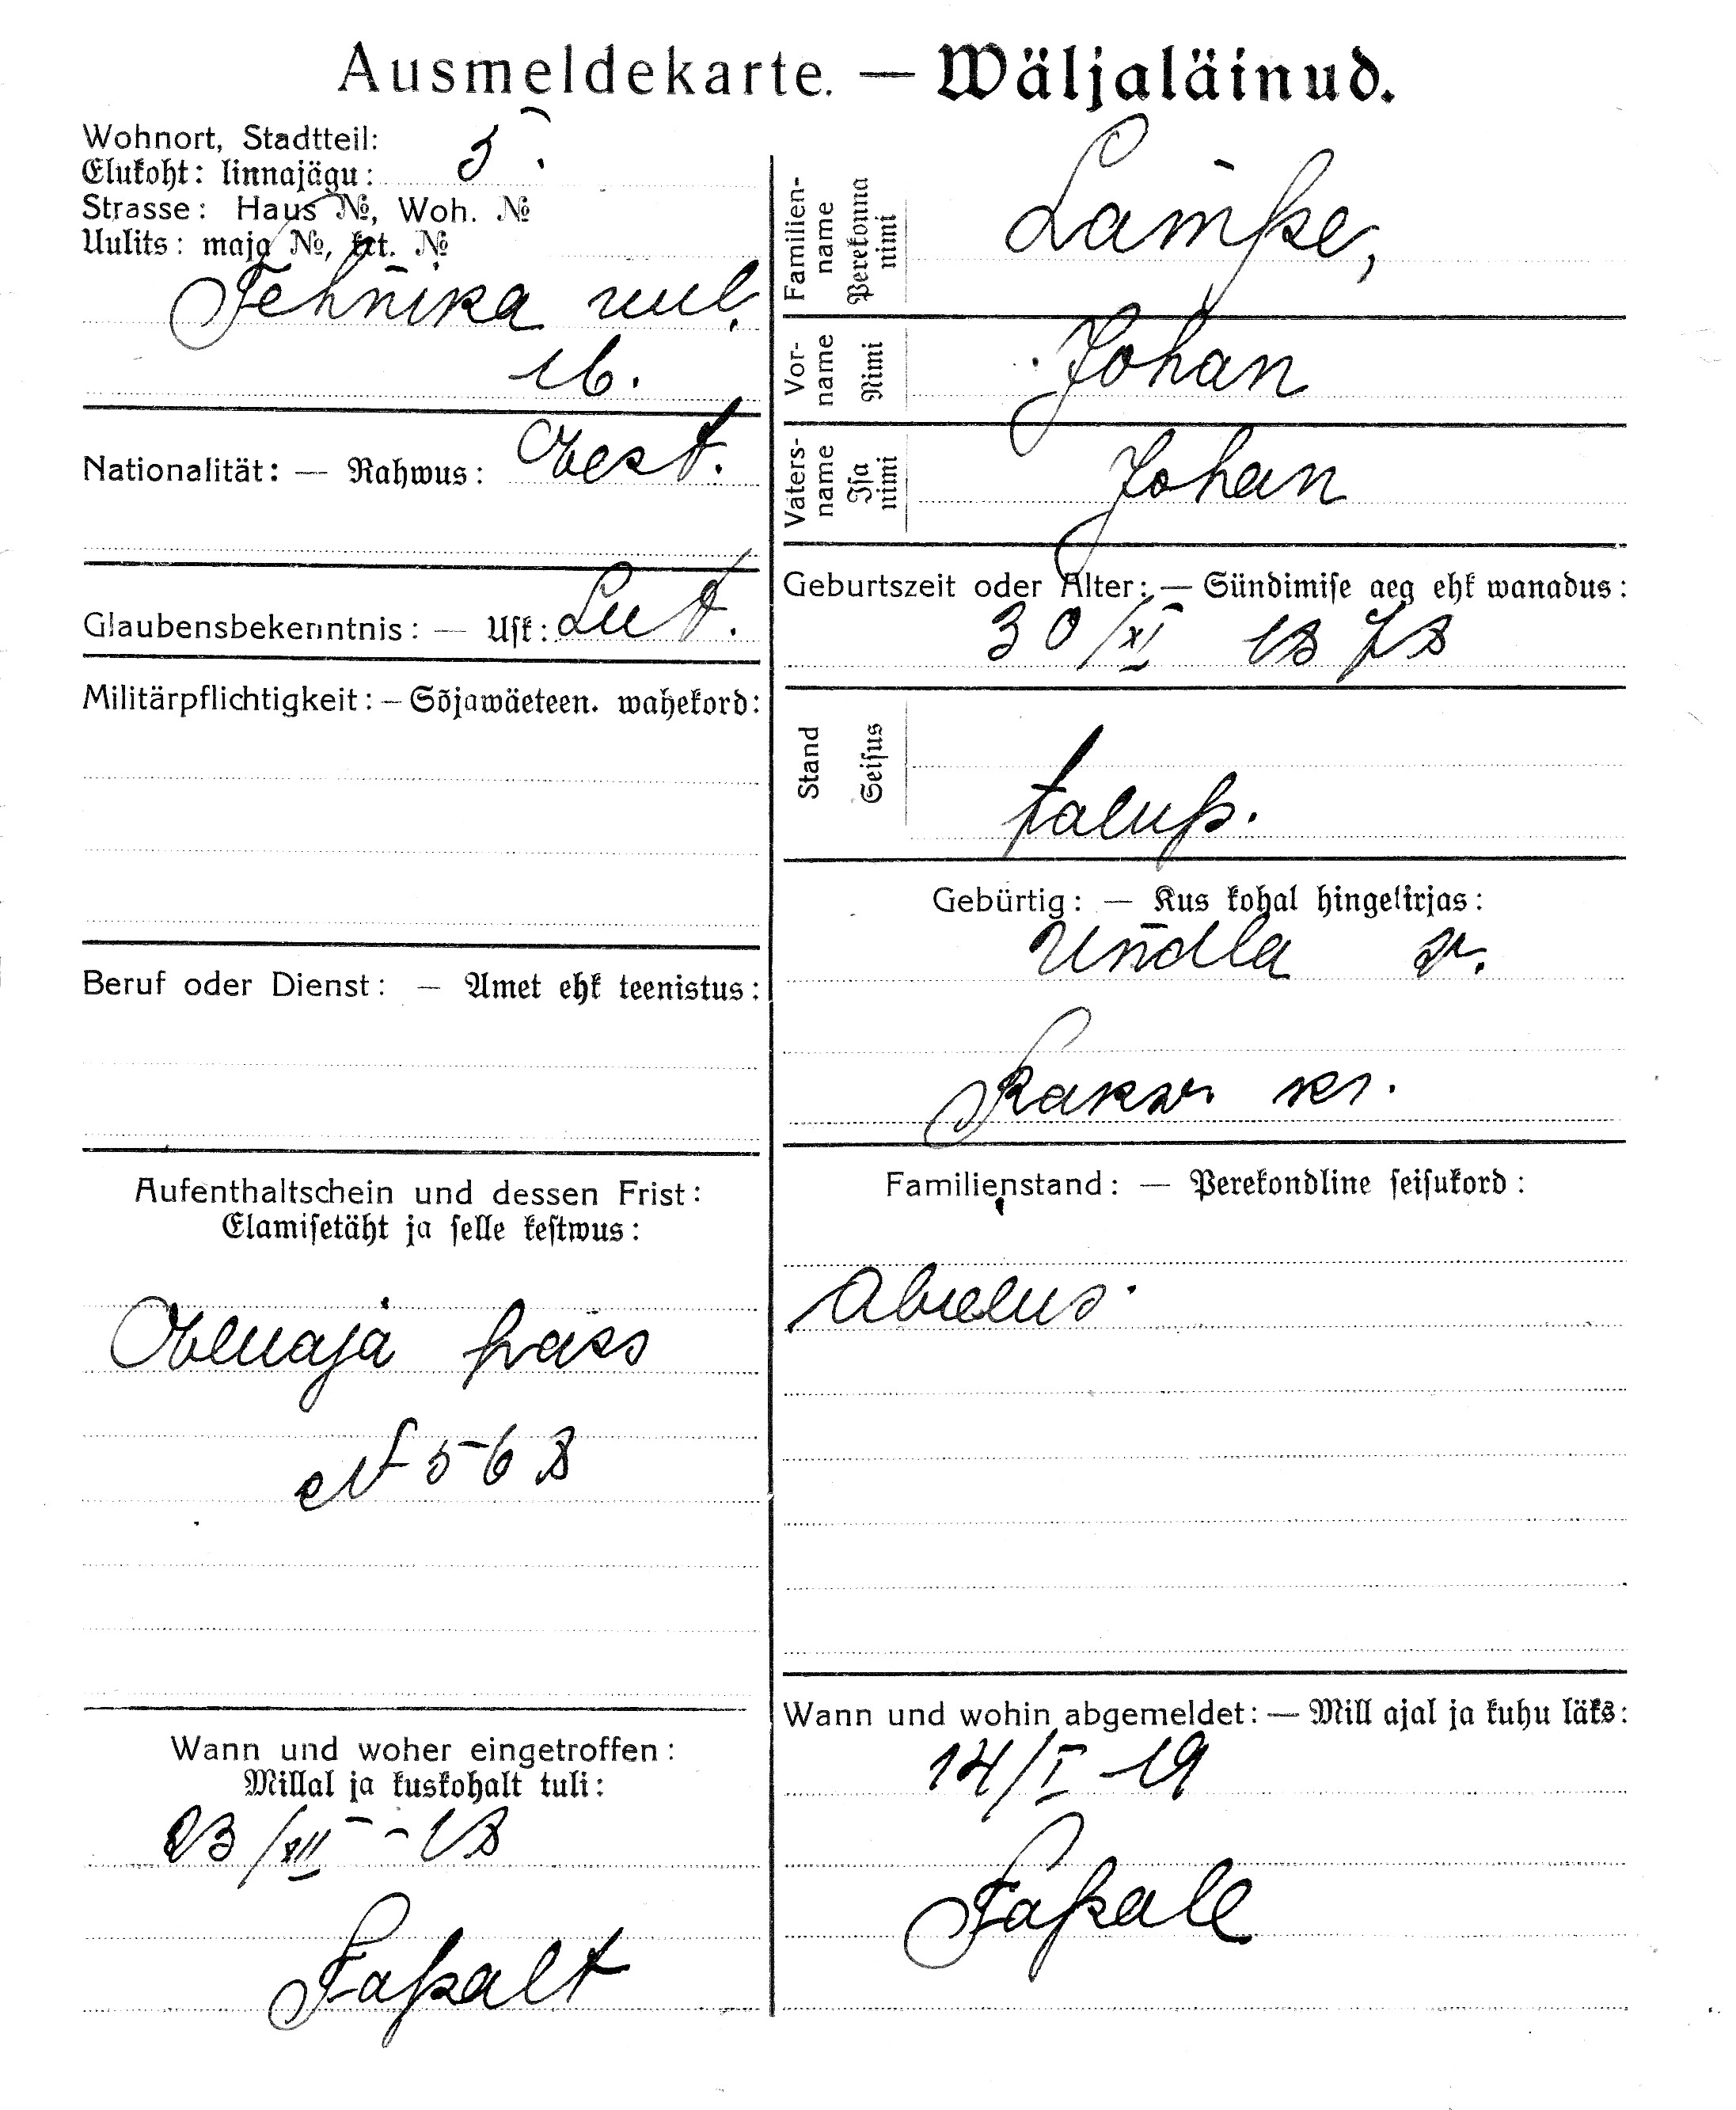 Ausmeldekarte. — Wäljaläinud.
Wohnort, Stadtteil:
Elukoht: linnajägu: 5.
Strasse: Haus №, Woh. №
Uulits: maja №, krt. №
Tehnika uul.
16.
Nationalität: — Rahwus: Eest.
Glaubensbekenntnis: — Usk: Lut.
Militärpflichtigkeit: — Sõjawäeteen. wahekord:
Beruf oder Dienst: — Amet ehk teenistus:
Aufenthaltschein und dessen Frist:
Elamisetäht ja selle kestwus:
Elluaja pass
№ 568
Wann und woher eingetroffen:
Millal ja kuskohalt tuli:
23/XII - 18
Tapalt
Familien-
name
Perekonna
nimi
Lampe,
Vor-
name
Nimi
Johan
Vaters-
name
Isa
nimi
Johan
Geburtszeit oder Alter: — Sündimise aeg ehk wanadus:
30/XI 1878
Stand
Seisus
talup.
Gebürtig: — Kus kohal hingekirjas:
Undla w.
Rakw. kr.
Familienstand: — Perekondline seisukord:
Abielus.
Wann und wohin abgemeldet: — Mill ajal ja kuhu läks:
14/I - 19
Tapale